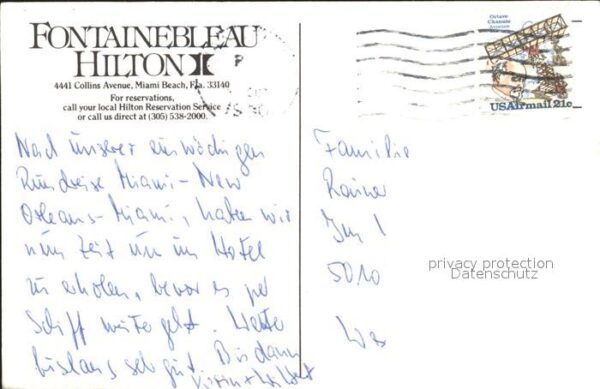 FONTAINEBLEAU
HILTON
4441 Collins Avenue, Miami Beach, Fla. 33140
For reservations,
call your local Hilton Reservation Service
or call us direct at (305) 538-2000.
Nach unserer einwöchigen
Rundreise Miami-New
Orleans-Miami, haben wir
nun Zeit uns im Hotel
zu erholen, bevor es per
Schiff weiter geht. Wetter
bislang sehr gut. Bis dann
Octave
Chanute
Aviation
USAirmail 21c
Familie
Rainer
5010
privacy protection
Datenschutz